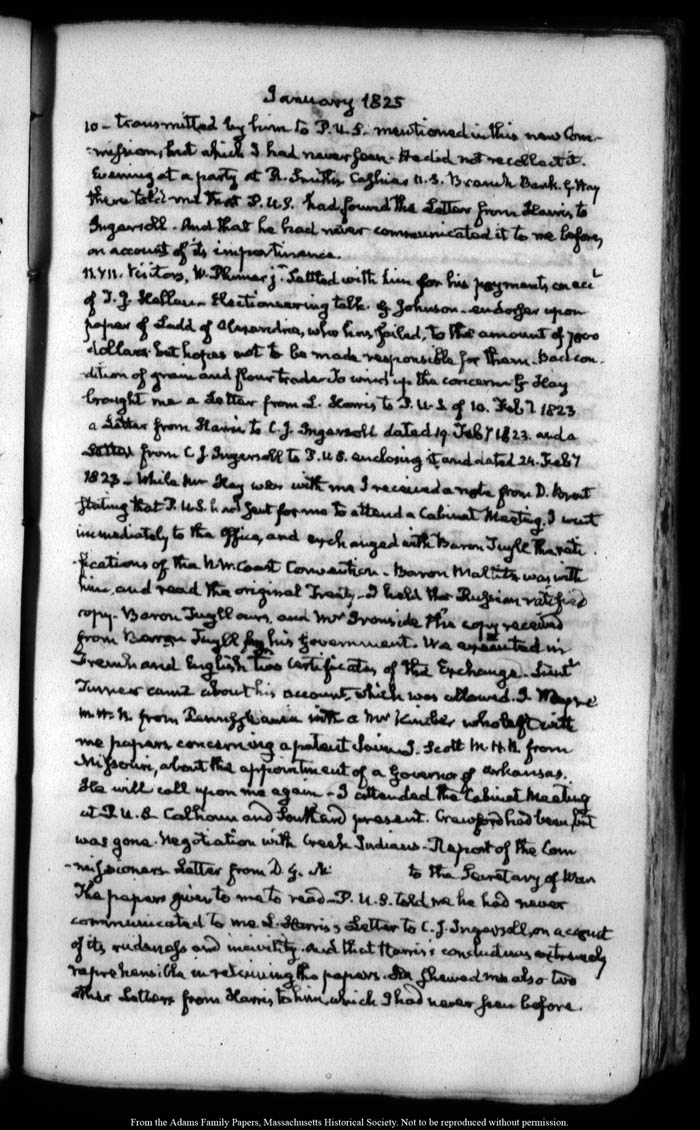 January 1825
10 – transmitted by him to P.U.S. mentioned in this new Com-
-mission, but which I had never seen. He did not recollect it.
Evening at a party at R. Smith's Cashier U.S. Branch Bank. G. Hay
there told me that P.U.S. had found the Letter from Harris to
Ingersoll. And that he had never communicated it to me before,
on account of its impertinence.
11. Visitors, W. Plumer jr. Settled with him for his payments on acct
of T. J. Hellen. Electioneering talk. G Johnson. endorser upon
paper of Ladd of Alexandria, who has failed, to the amount of 7000
dollars. but hopes not to be made responsible for them. Bad con-
dition of grain and flour trade. To wind up the concern. G Hay
brought me a Letter from L. Harris to P.U.S. of 10. Feby 1823
a Letter from Harris to C. J. Ingersoll dated 19 Feby 1823. and a
Letter from C. J. Ingersoll to P.U.S. enclosing it and dated 24. Feby
1823 – While Mr Hay was with me I received a note from D. Brent
stating that P.U.S. had sent for me to attend a Cabinet Meeting. I went
immediately to the Office, and exchanged with Baron Tuyll the rati-
-fications of the N.W. Coast Convention. Baron Maltitz was with
him, and read the original Treaty. I held the Russian ratified
copy. Baron Tuyll ours, and Mr Ironside the copy received
from Baron Tuyll by his Government. We executed in
French and English two certificates of the Exchange. Lieutt
Turner came about his account, which was allowed. I Wayne
M.H.R. from Pennsylvania with a Mr Kimber who left with
me papers concerning a patent Scott M.H.R. from
Missouri, about the appointment of a Governor of Arkansas.
He will call upon me again – I attended the Cabinet Meeting
at P.U.S. Calhoun and Southard present. Crawford had been, but
was gone. Negotiation with Creek Indians. Report of the Com
-missioners. Letter from D. G. M to the Secretary of War
The papers given to me to read. P.U.S. told me he had never
communicated to me L. Harris's Letter to C. J. Ingersoll, on account
of its rudeness and incivility. And that Harris's conduct was extremely
reprehensible in retaining the papers. He shewed me also two
other Letters from Harris to him, which I had never seen before.
From the Adams Family Papers, Massachusetts Historical Society. Not to be reproduced without permission.